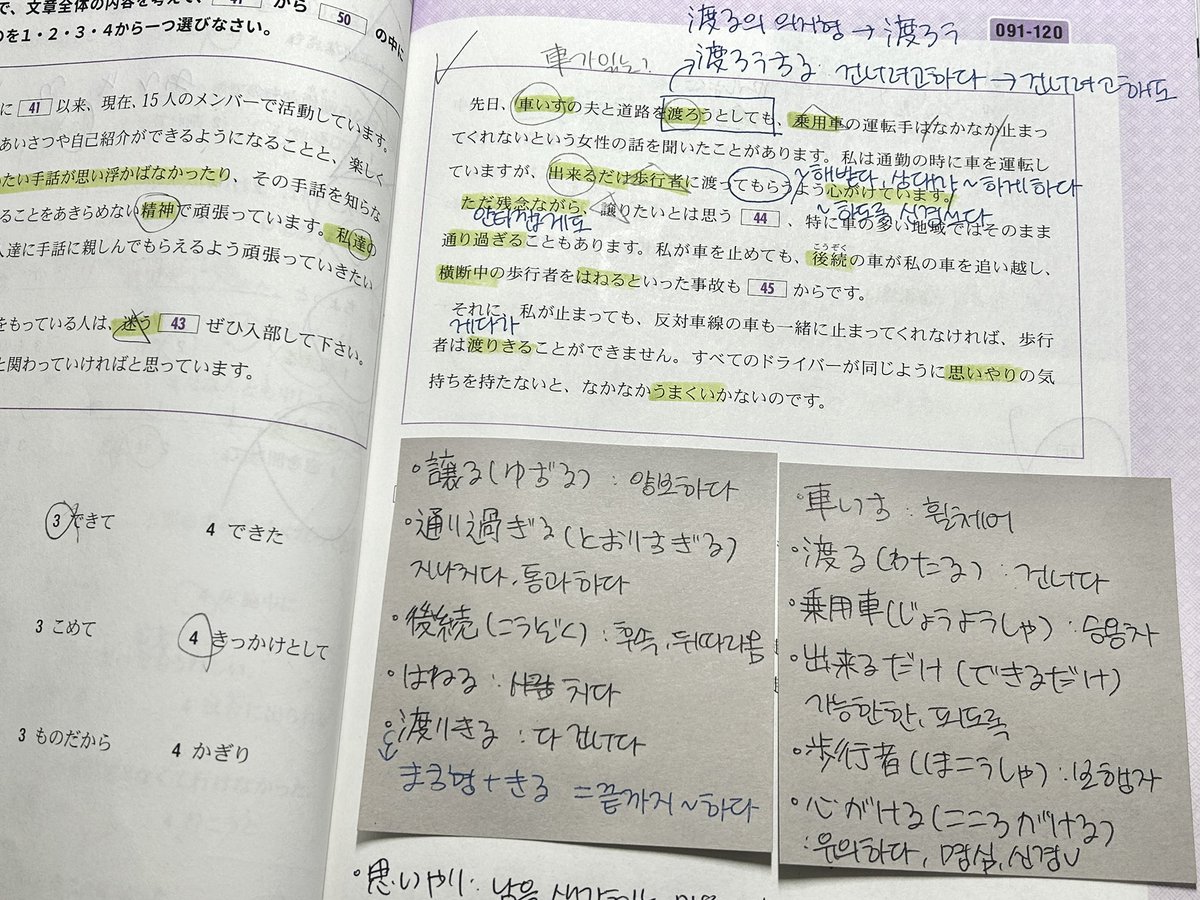 で、文章全体の内容を考えて、 41 から 50 の中に
のを1・2・3・4から一つ選びなさい。
に 41 以来、現在、15人のメンバーで活動しています。
あいさつや自己紹介ができるようになることと、楽しく
たい手話が思い浮かばなかったり、その手話を知らな
ることをあきらめない精神で頑張っています。私達の
人達に手話に親しんでもらえるよう頑張っていきたい
をもっている人は、迷う 43 ぜひ入部して下さい。
と関わっていければと思っています。
3 できて
4 できた
3 こめて
4 きっかけとして
3 ものだから
4 かぎり
渡る의 의지형 → 渡ろう
091-120
車가있는?
渡ろうする 건너려고하다 → 건너려고해도
先日、車いすの夫と道路を渡ろうとしても、乗用車の運転手はなかなか止まっ
てくれないという女性の話を聞いたことがあります。私は通勤の時に車を運転し
ていますが、出来るだけ歩行者に渡ってもらうよう心がけています。
~해받다, 상대가 ~하게하다
~하도록 신경쓰다
ただ残念ながら、譲りたいとは思う 44 、特に車の多い地域ではそのまま
안타깝게도
通り過ぎることもあります。私が車を止めても、後続の車が私の車を追い越し、
こうぞく
横断中の歩行者をはねるといった事故も 45 からです。
それに、私が止まっても、反対車線の車も一緒に止まってくれなければ、歩行
게다가
者は渡りきることができません。すべてのドライバーが同じように思いやりの気
持ちを持たないと、なかなかうまくいかないのです。
・譲る(ゆずる) : 양보하다
・通り過ぎる(とおりすぎる)
지나치다, 통과하다
・後続(こうぞく) : 후속, 뒤따라옴
・はねる : 치다
・渡りきる : 다 건너다
ます형 + きる = 끝까지 ~하다
・車いす : 휠체어
・渡る(わたる) : 건너다
・乗用車(じょうようしゃ) : 승용차
・出来るだけ (できるだけ)
가능한한, 되도록
・歩行者(ほこうしゃ) : 보행자
・心がける(こころがける)
: 유의하다, 명심, 신경
・思いやり : 남을